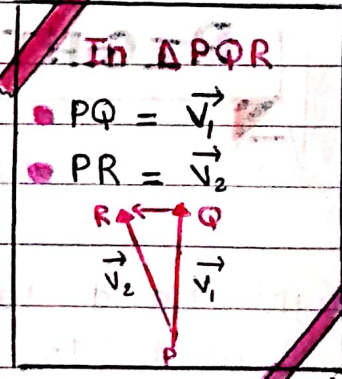 In Δ PQR
PQ = V₁→
PR = V₂→
R Q
V₂→ V₁→
P